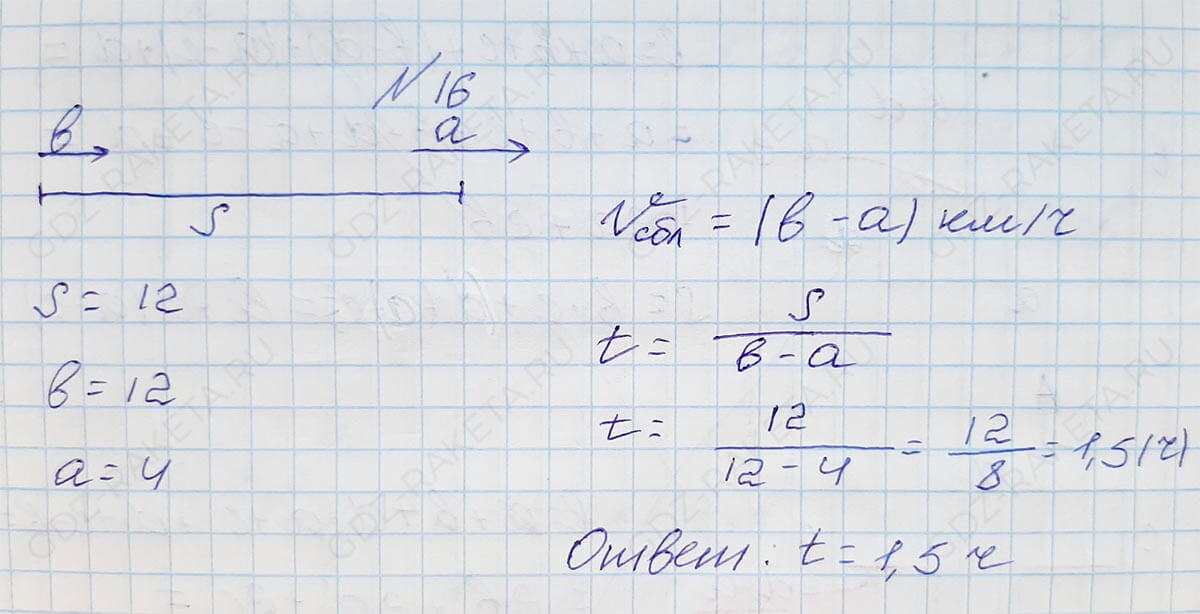 N 16
в a
S
S = 12
в = 12
a = 4
Vсбл = (в - a) км/ч
t = S / (в - a)
t = 12 / (12 - 4) = 12 / 8 = 1,5 (ч)
Ответ: t = 1,5 ч
GDZ-RAKETA.RU